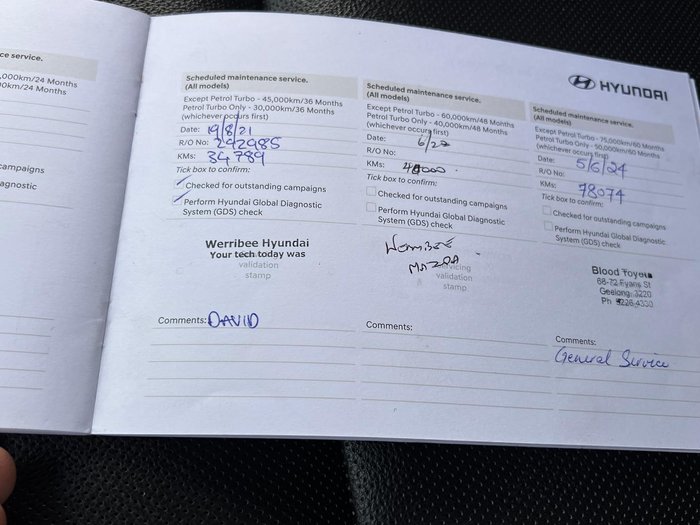 ce service.
,000km/24 Months
00km/24 Months
campaigns
agnostic
Scheduled maintenance service.
(All models)
Except Petrol Turbo - 45,000km/36 Months
Petrol Turbo Only - 30,000km/36 Months
(whichever occurs first)
Date: 19/8/21
R/O No: 292985
KMs: 34789
Tick box to confirm:
Checked for outstanding campaigns
Perform Hyundai Global Diagnostic
System (GDS) check
Werribee Hyundai
Your tech today was
validation
stamp
Comments: DAVID
Scheduled maintenance service.
(All models)
Except Petrol Turbo - 60,000km/48 Months
Petrol Turbo Only - 40,000km/48 Months
(whichever occurs first)
Date: 6/22
R/O No:
KMs:
Tick box to confirm:
Checked for outstanding campaigns
Perform Hyundai Global Diagnostic
System (GDS) check
Werribee
MAZDA
validation
stamp
Comments:
HYUNDAI
Scheduled maintenance service.
(All models)
Except Petrol Turbo - 75,000km/60 Months
Petrol Turbo Only - 50,000km/60 Months
(whichever occurs first)
Date: 5/6/24
R/O No:
KMs: 78074
Tick box to confirm:
Checked for outstanding campaigns
Perform Hyundai Global Diagnostic
System (GDS) check
Blood Toyota
68-72 Fyans St
Geelong 3220
Ph
Comments:
General Service